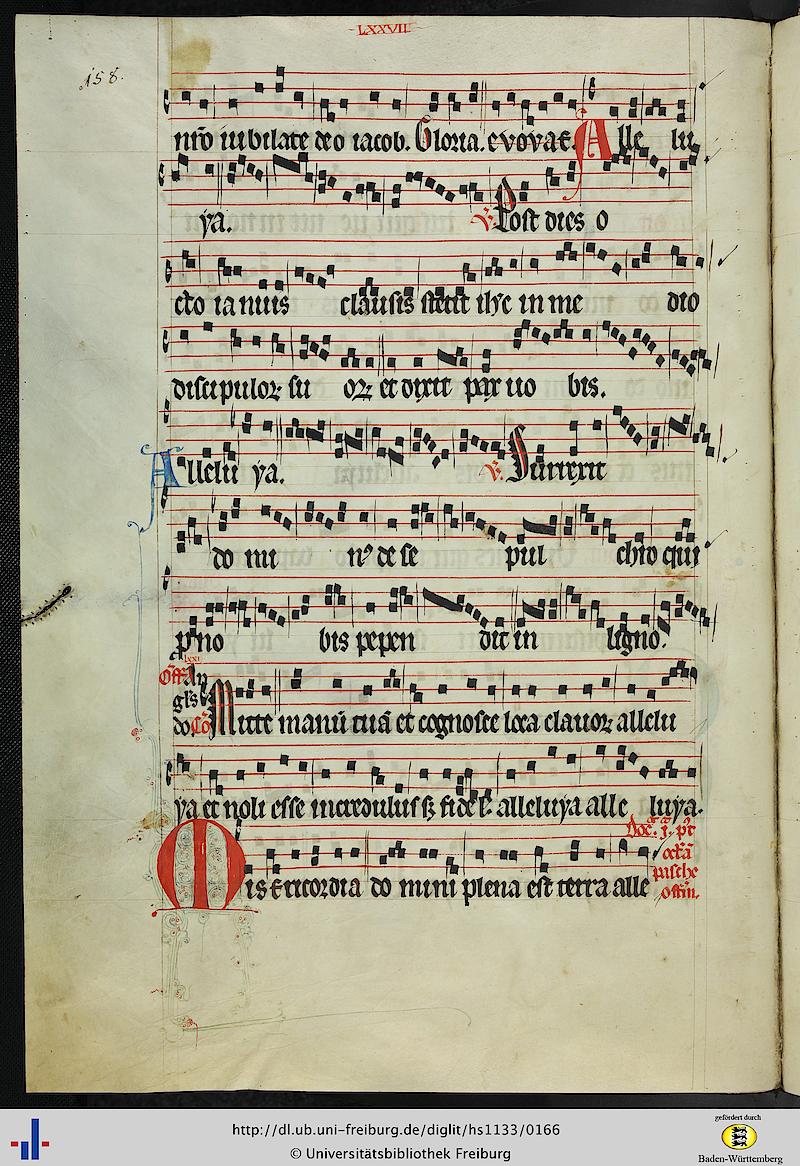 LXXVII
158.
nr̃o iubilate deo iacob. Gloria. evovae. Alle lu
ya. V. Post dies o
cto ianuis clausis stetit ihc in me dio
discipuloꝝ su oꝝ et dixit pax uo bis.
Allelu ya. V. Surrexit
do mi nꝰ de se pul chro qui
p nobis pepen dit in ligno.
lxxi
Off. An
gl's
do Cõ Mitte manũ tuã et cognosce loca clauoꝝ allelu
ya et noli esse incredulus sꝫ fidel'. alleluya alle luya.
Misericordia do mini plena est terra alle
Doc. j. pt
octã
pasche
offm.
http://dl.ub.uni-freiburg.de/diglit/hs1133/0166
© Universitätsbibliothek Freiburg
gefördert durch
Baden-Württemberg